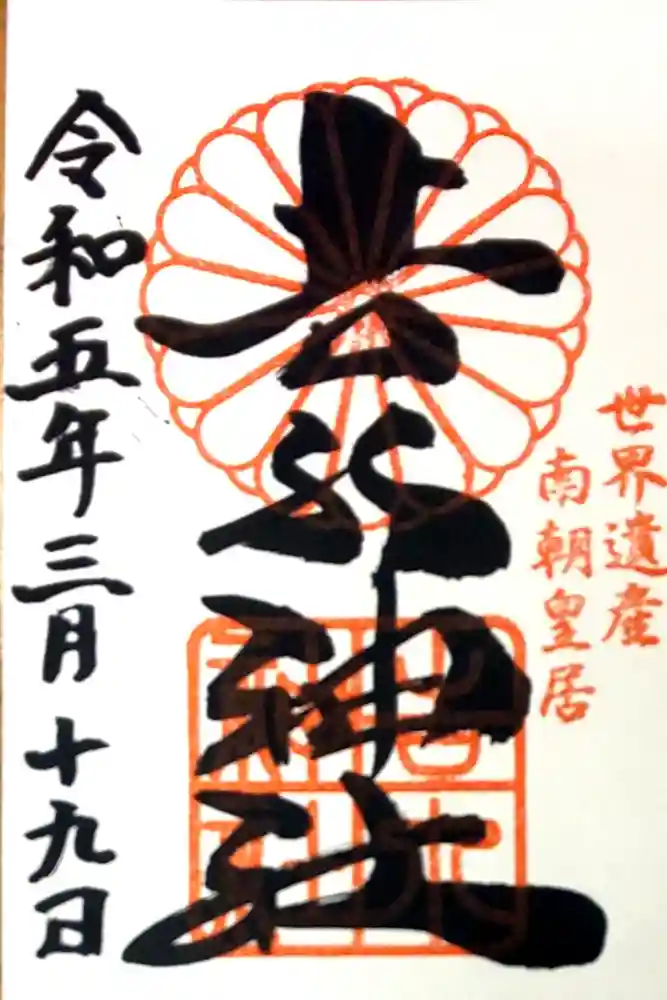 世界遺産
南朝皇居
吉水神社
吉水神社
令和五年三月十九日